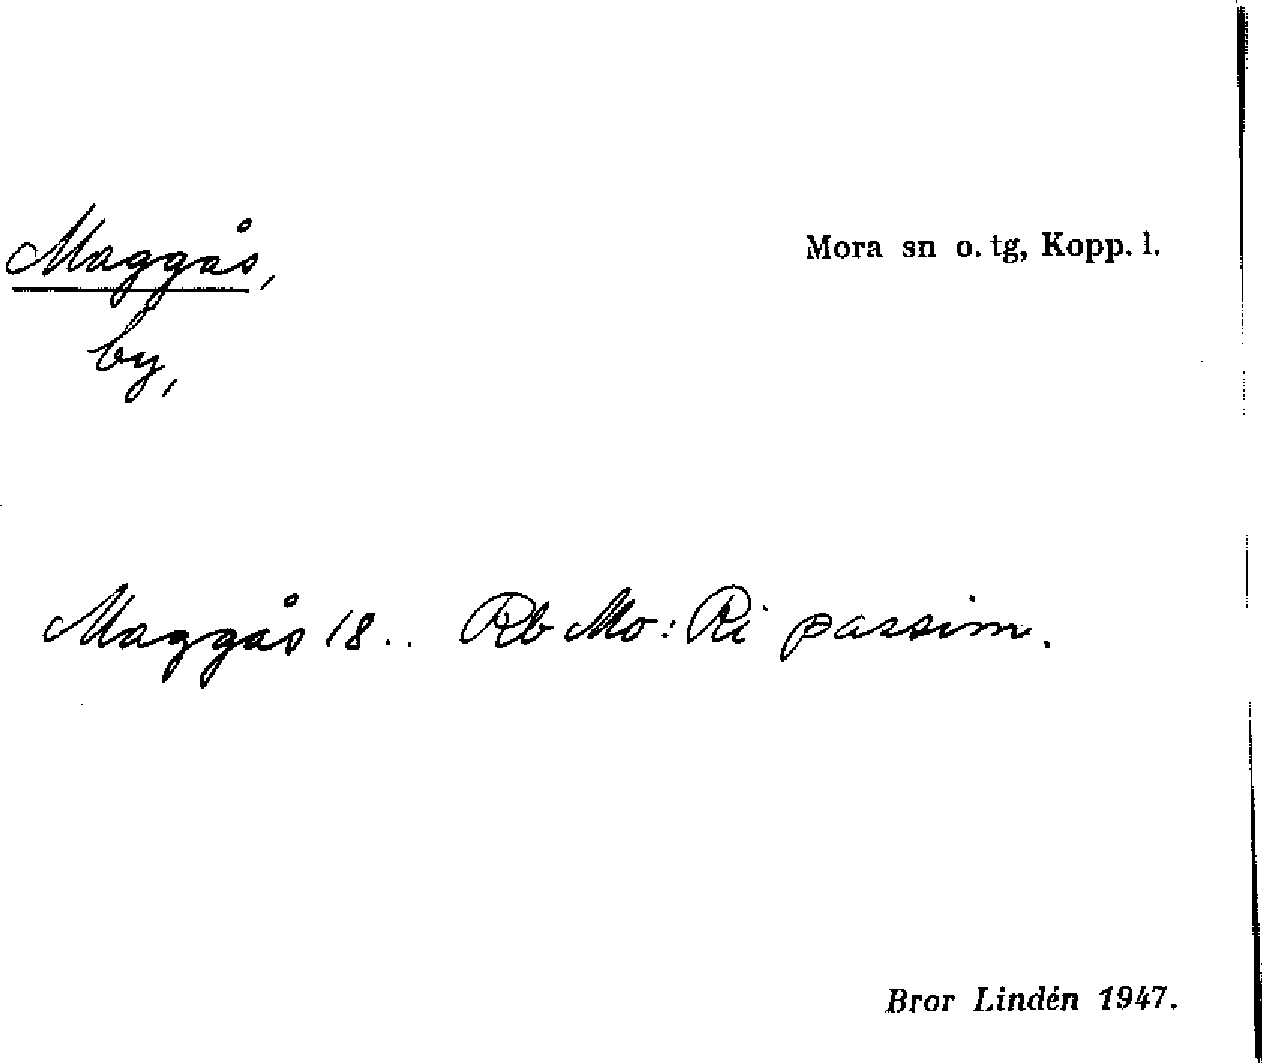 Maggås,
Mora sn o. tg, Kopp. l.
by,
Maggås 18.. Rb Mo: Ri passim.
Bror Lindén 1947.